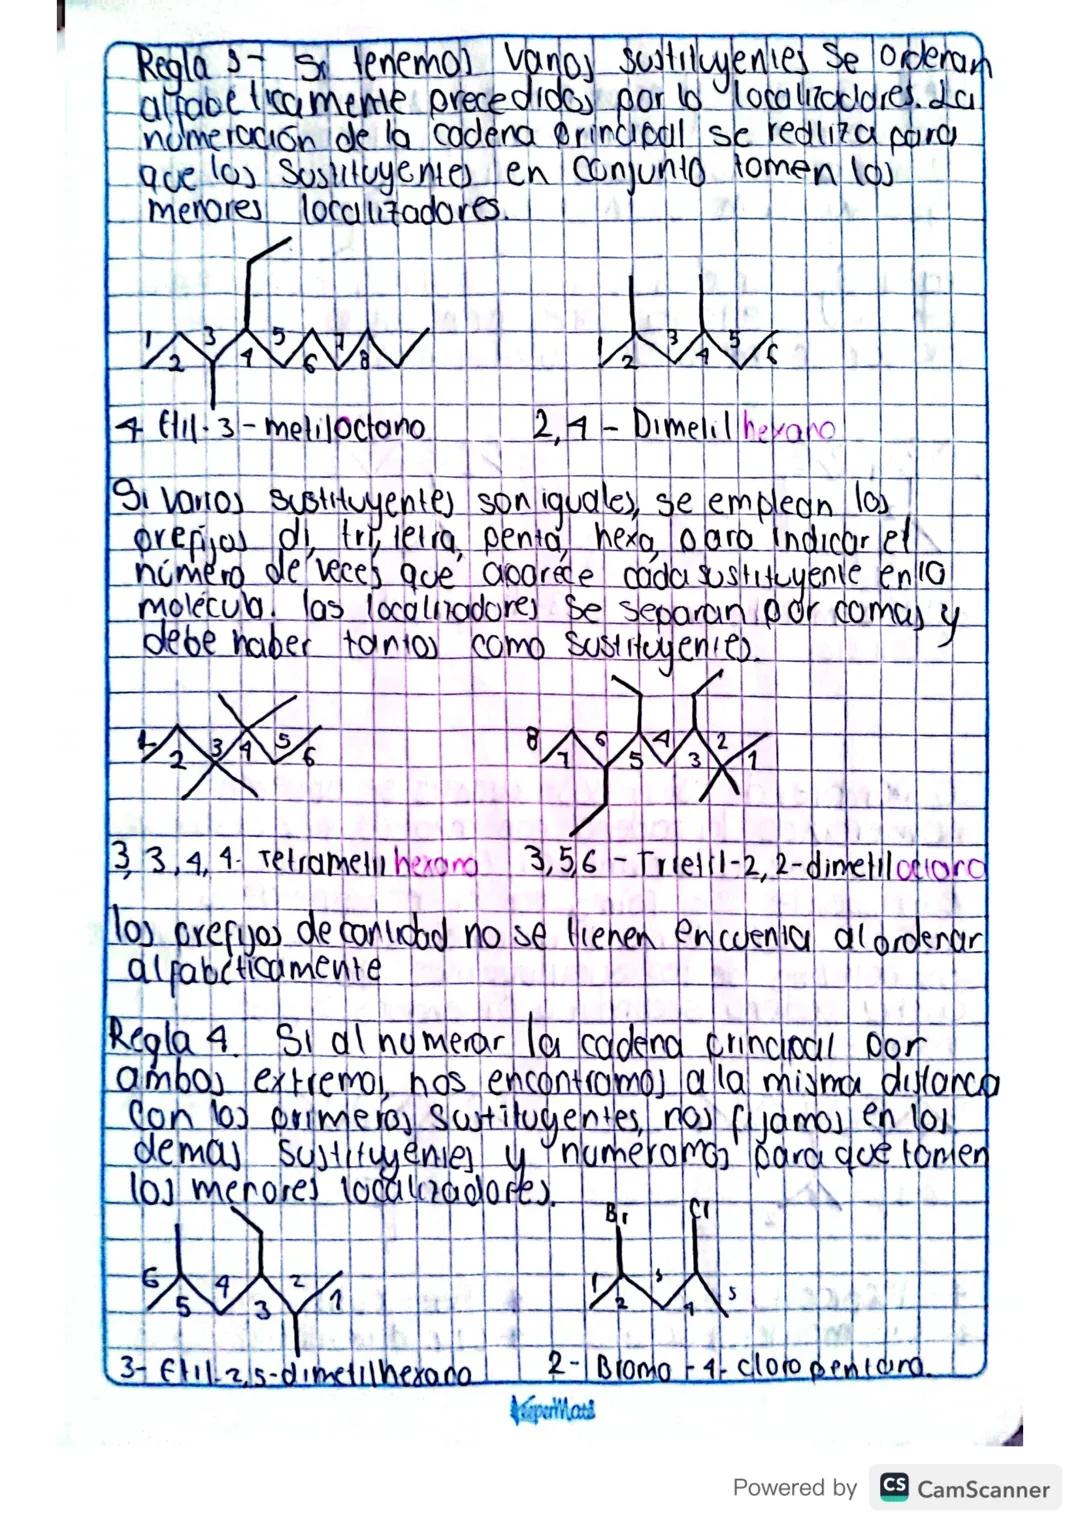 Regla 3- Si tenemos varios sustituyentes se ordenan
alfabeticamente precedidos por lo localizadores. La
numeración de la cadena principal se realiza para
que los sustituyentes en conjunto tomen los
menores localizadores.
1 2 3 4 5 6 7 8
1 2 3 4 5 6
4 Etil-3-metiloctano
2,4-Dimetil hexano
Si varios sustituyentes son iguales, se emplean los
prefijos di, tri, tetra, penta, hexa, para indicar el
número de veces que aparece cada sustituyente en la
molécula. los localizadores se separan por comas y
debe haber tantos como sustituyentes.
1 2 3 4 5 6
8 7 6 5 4 3 2 1
3,3,4,4-Tetrametil hexano
3,5,6-Trietil-2,2-dimetiloctano
los prefijos de cantidad no se tienen en cuenta al ordenar
alfabéticamente
Regla 4. Si al numerar la cadena principal por
ambos extremos, nos encontramos a la misma distanca
con los primeros sustituyentes, nos fijamos en los
demas sustituyentes y numeramos para que tomen
los menores localizadores.
6 5 4 3 2 1
Br Cl
1 2 3 4 5
3-Etil-2,5-dimetilhexano
2-Bromo-4-cloropentano.
SuperMats
Powered by CS CamScanner